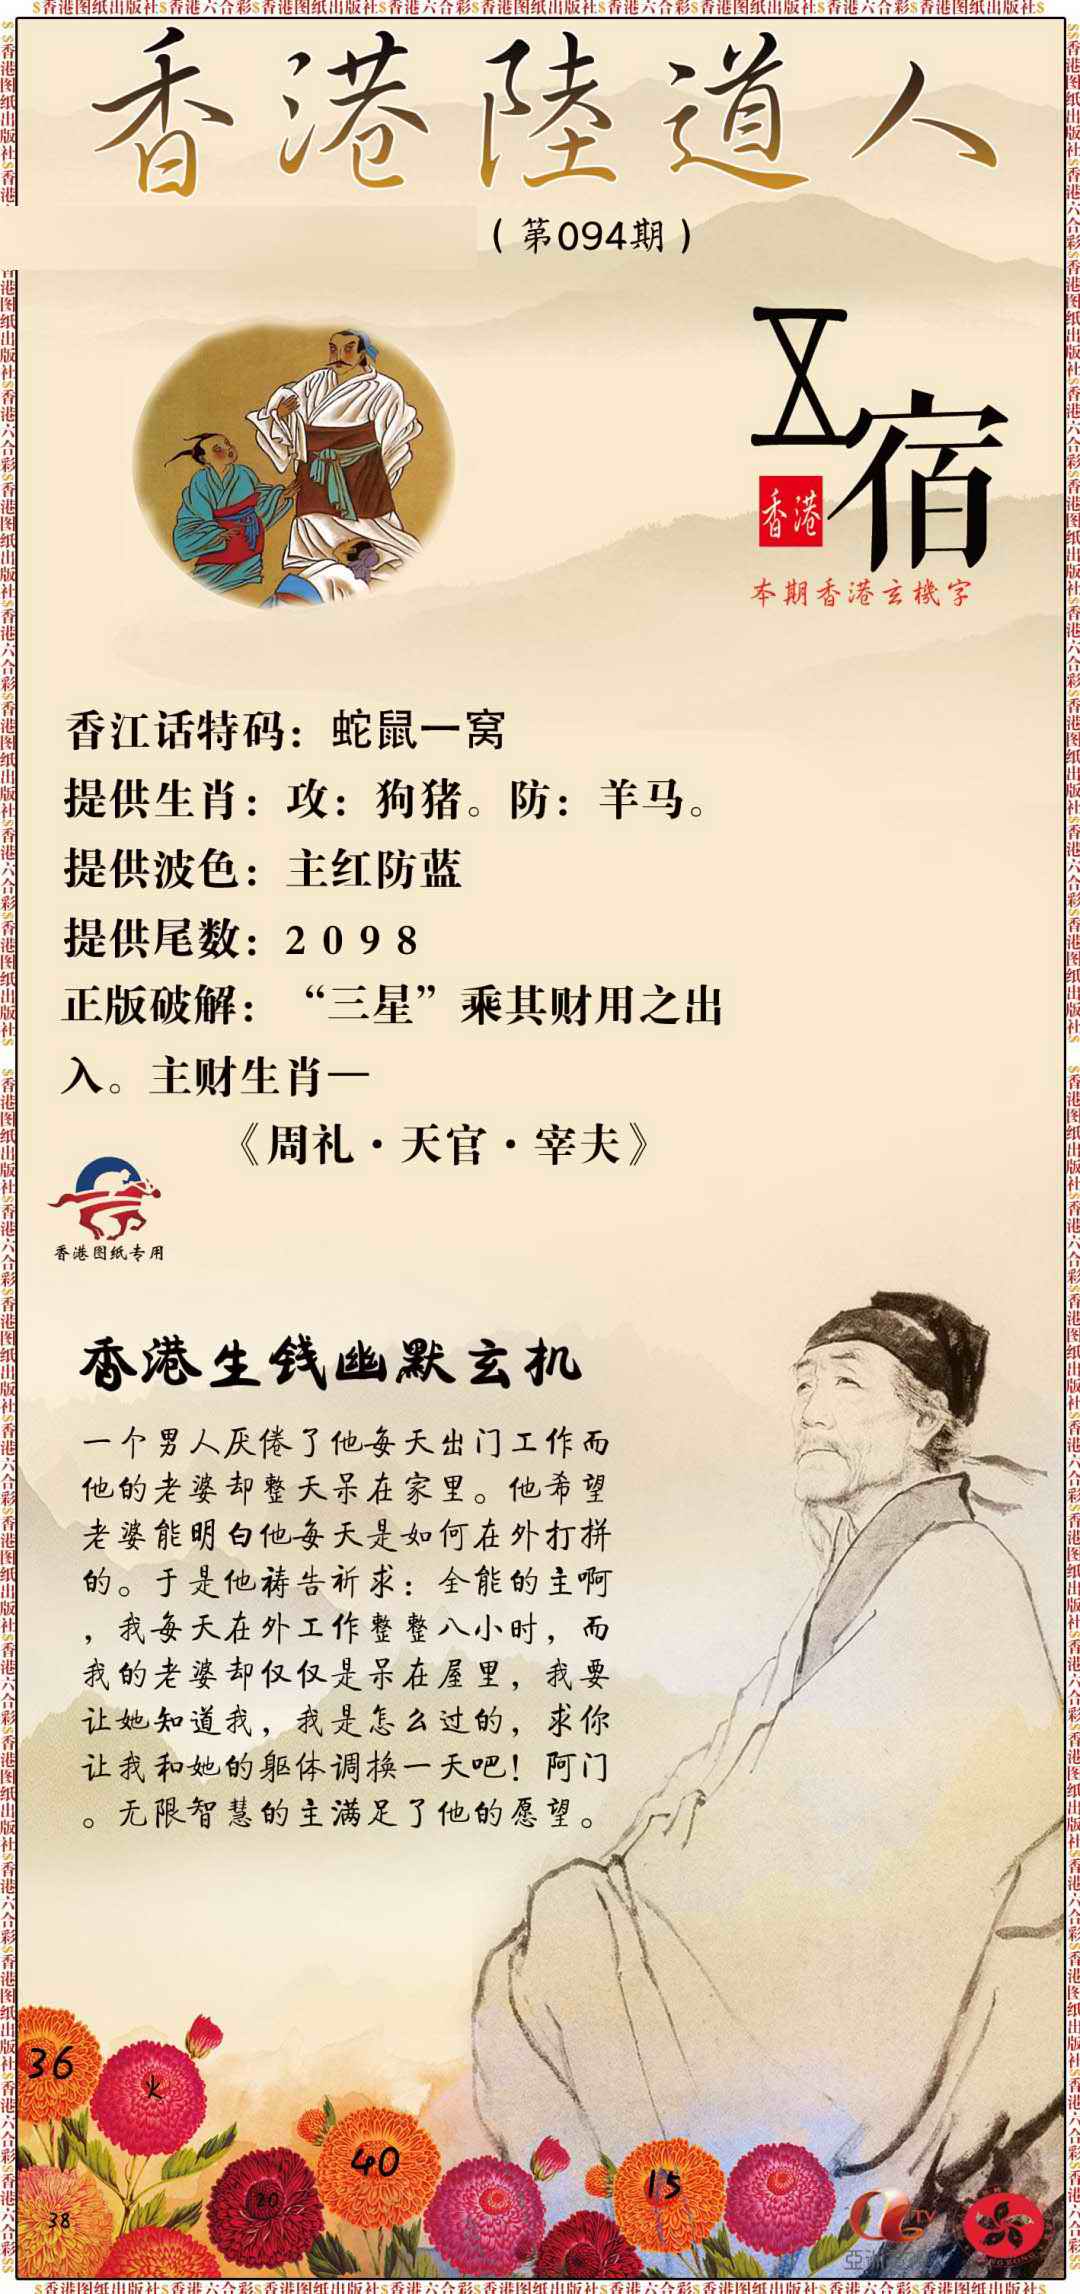 $香港图纸出版社$香港六合彩$香港图纸出版社$香港六合彩$香港图纸出版社$香港六合彩$香港图纸出版社$
香港陸道人
(第094期)
宿
香港
本期香港玄機字
香江话特码：蛇鼠一窝
提供生肖：攻：狗猪。防：羊马。
提供波色：主红防蓝
提供尾数：2098
正版破解：“三星”乘其财用之出
入。主财生肖—
《周礼·天官·宰夫》
香港图纸专用
香港生钱幽默玄机
一个男人厌倦了他每天出门工作而
他的老婆却整天呆在家里。他希望
老婆能明白他每天是如何在外打拼
的。于是他祷告祈求：全能的主啊
，我每天在外工作整整八小时，而
我的老婆却仅仅是呆在屋里，我要
让她知道我，我是怎么过的，求你
让我和她的躯体调换一天吧！阿门
。无限智慧的主满足了他的愿望。
36
火
40
15
20
38
TV
亞洲
$香港图纸出版社$香港六合彩$香港图纸出版社$香港六合彩$香港图纸出版社$香港六合彩$香港图纸出版社$